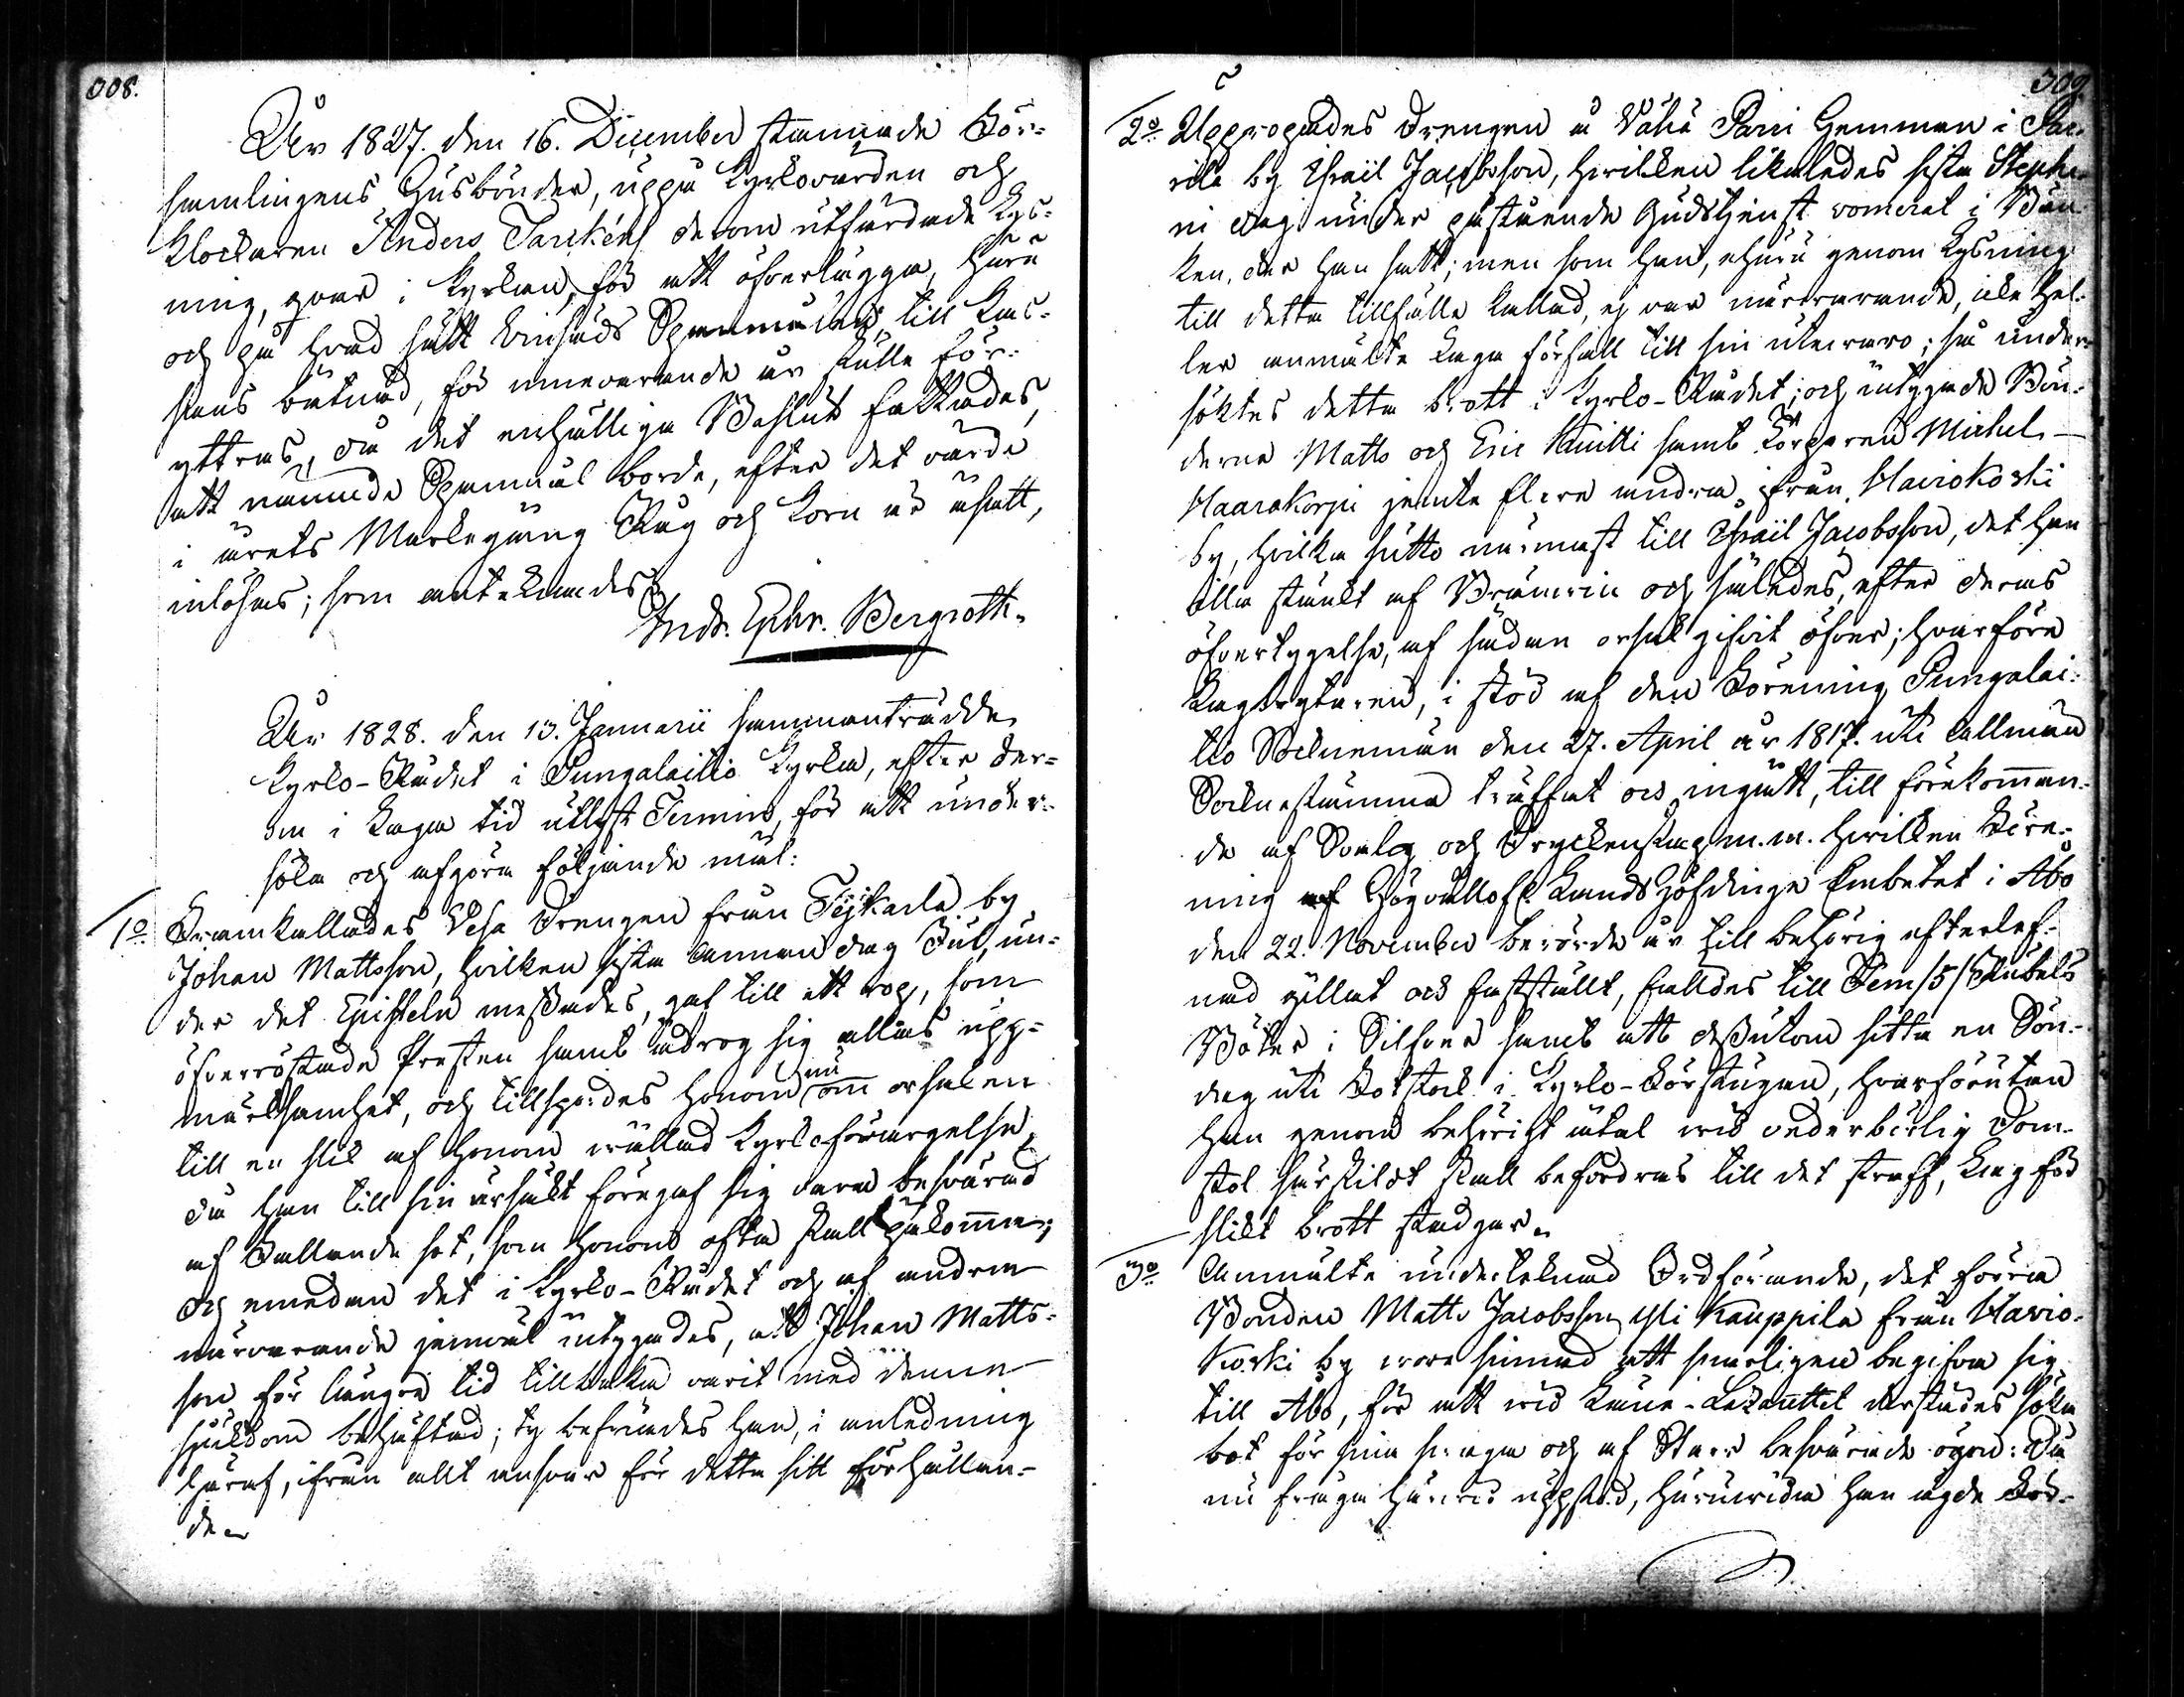 308.
År 1827. den 16. December stannade För=
samlingens Husbönder, uppå Kyrkovärden och
Klockaren Anders Tarckéns derom utfärdade Lys=
ning, qvar i Kyrkan, för att öfverlägga, huru
och på hvad sätt Spanmålen, till Cas=
sans båtnad, för innevarande år skulle för=
yttras, då det enhälliga Beslut fattades,
att nämnde Spanmål borde, efter det värde
i årets Markegång Råg och Korn är åsatt,
inlösas; som antecknades
Andr. Ephr. Bergroth.
År 1828. den 13. Januarii sammanträdde
Kyrko-Rådet i Pungalaitio Kyrka, efter der=
om i laga tid utlyst Termin, för att under=
söka och afgöra följande mål:
1o. Framkallades Drengen från Tijkarla by
Johan Mattsson, hvilken sista annan dag Jul, un=
der det Episteln messades, gaf till ett rop, som
öfverröstade Presten samt ådrog sig allas upp=
märksamhet, och tillspordes honom nu om orsaken
till en slik af honom vållad Kyrkoförargelse,
då han till sin ursäkt föregaf sig vara besvärad
af fallande sot, som honom ofta skall påkomma;
Och emedan det i Kyrko-Rådet och af andra
närvarande jemväl intygades, att Johan Matts=
son för längre tid tillbaka varit med denna
sjukdom behäftad; ty befriades han, i anledning
häraf, ifrån allt ansvar för detta sitt förhållan=
de.
309.
2o Uppropades Drengen å Vähä Parri Hemman i
by Israil Jacobsson, hvilken likaledes sista Stepha=
ni dag under påstående Gudstjenst vomerat i Bän=
ken, der han satt; men som han, ehuru genom Lysning
till detta tillfälle kallad, ej var närvarande, icke hel=
ler anmälte laga förfall till sin utevaro; så under=
söktes detta brott i Kyrko-Rådet; och intygade Bön=
derne Matts och Eric Knitti samt Torpparen Michel
Haarakorpi jemte flere andra ifrån Haviokoski
by, hvilka sutto närmast till Israil Jacobsson, det han
illa stänkt af Brännvin och således, efter deras
öfvertygelse, af sådan orsak gifvit öfver; hvarföre
Lagbrytaren, i stöd af den Förening Pungalai=
tio Sockneman den 27. April år 1817. uti allmän
Socknestämma träffat och ingått, till förekomman=
de af Svalg och Dryckenskap m.m. hvilken Före=
ning af Högvällofl. Landshöfdinge Embetet i Åbo
den 22. November berörde år till behörig efterlef=
nad gillat och fastställt, fälldes till Fem /5/ Rubels
Böter i Silfver samt att dessutom sitta en Sön=
dag uti Fotstock i Kyrko-Förstugan, hvarförutan
han genom behörigt åtal vid vederbörlig Dom=
stol särskilt skall befordras till det straff, Lag för
slikt brott stadgar.
3o Anmälte undertecknad Ordförande, det förra
Bonden Matts Jacobsson Yli Kauppila från Havio=
koski by vore sinnad att snarligen begifva sig
till Åbo, för att vid Läne-Lazarettet derstädes söka
bot för sina svaga och af Starr besvärade ögon: Då
nu fråga härvid uppstod, huruvida han ägde För=